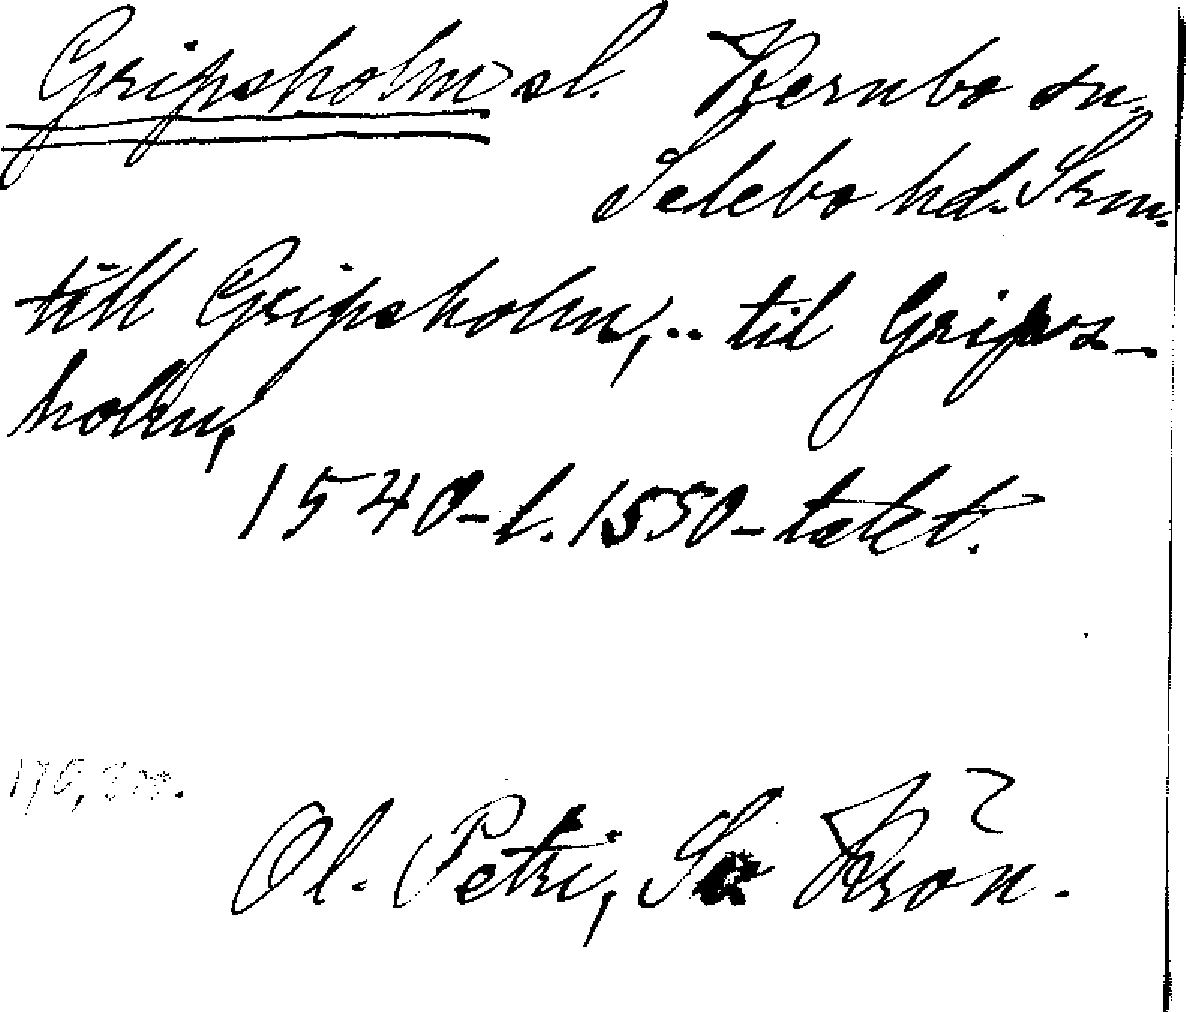 Gripsholm sl. Kernbo sn.
Selebo hd. Srm.
till Gripsholm, .. til Grips-
holm,
1540- l. 1550-talet.
Ol. Petri, Sv Krön.